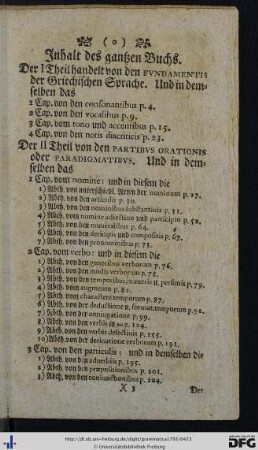 ( 0 )
Inhalt des gantzen Buchs.
Der I Theil handelt von den FVNDAMENTIS
der Griechischen Sprache. Und in dem-
selben das
1 Cap. von den consonantibus p. 4.
2 Cap. von den vocalibus p. 9.
3 Cap. vom tono und accentibus p. 15.
4 Cap. von den notis diacriticis p. 23.
Der II Theil von den PARTIBVS ORATIONIS
oder PARADIGMATIBVS. Und in dem-
selben das
1 Cap. vom nomine: und in diesem die
1) Abth. von unterschiedl. Arten der nominum p. 27.
2) Abth. von den articulis p. 30.
3) Abth. von den nominibus substantivis p. 31.
4) Abth. vom nomine adiectivo und participio p. 52.
5) Abth. von den numeralibus p. 64.
6) Abth. von den derivatis und compositis p. 67.
7) Abth. von den pronominibus p. 73.
2 Cap. vom verbo: und in diesem die
1) Abth. von den generibus verborum p. 76.
2) Abth. von den modis verborum p. 78.
3) Abth. von den temporibus, numeris u. personis p. 79.
4) Abth. vom augmento p. 81.
5) Abth. vom charactere temporum p. 87.
6) Abth. von der deductione u. format. temporum p. 92.
7) Abth. von der coniugatione p. 99.
8) Abth. von den verbis in μι p. 124.
9) Abth. von den verbis defectivis p. 155.
10) Abth. von der derivatione verborum p. 191.
3 Cap. von den particulis: und in demselben die
1) Abth. von den adverbiis p. 195.
2) Abth. von den praepositionibus p. 201.
3) Abth. von den coniunctionibus p. 204.
X 3 Der
http://dl.ub.uni-freiburg.de/diglit/grammatica1785/0423
© Universitätsbibliothek Freiburg
gefördert durch die
DFG